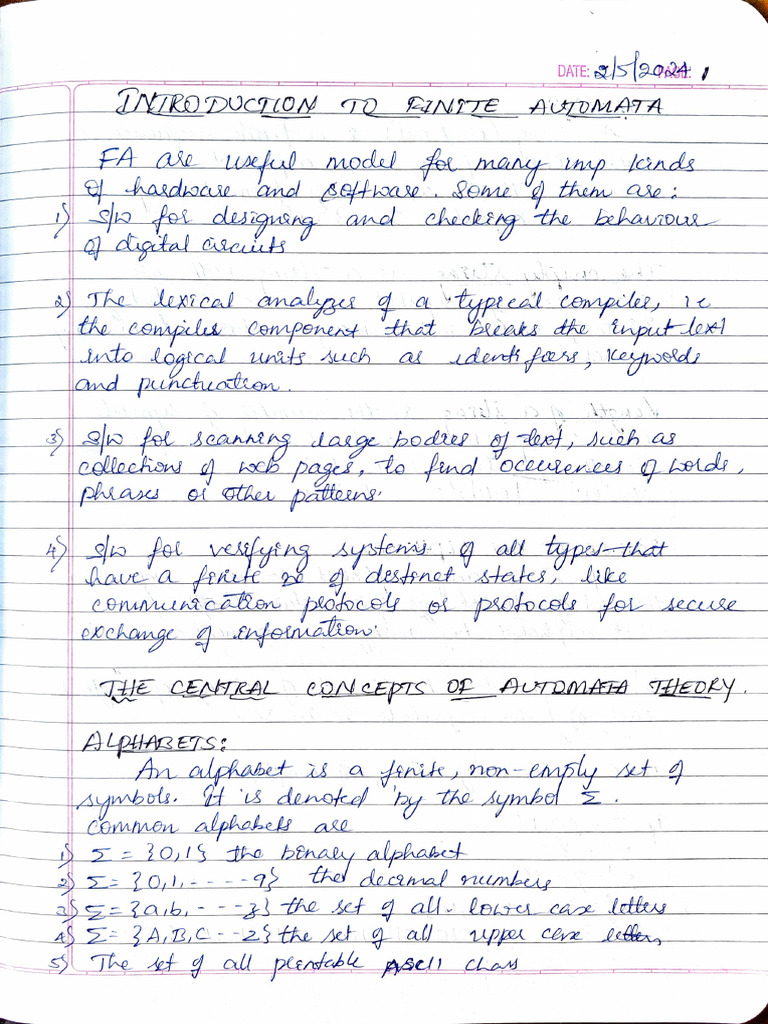 DATE: 2/5/2024 1
INTRODUCTION TO FINITE AUTOMATA
FA are useful model for many imp kinds
of hardware and software. Some of them are:
1) S/W for designing and checking the behaviour
of digital circuits
2) The lexical analyzer of a typical compiler, ie
the compiler component that breaks the input text
into logical units such as identifiers, keywords
and punctuation.
3) S/W for scanning large bodies of text, such as
collections of web pages, to find occurences of words,
phrases or other patterns.
4) S/W for verifying systems of all types that
have a finite no of distinct states, like
communication protocols or protocols for secure
exchange of information.
THE CENTRAL CONCEPTS OF AUTOMATA THEORY.
ALPHABETS:
An alphabet is a finite, non-empty set of
symbols. It is denoted by the symbol Σ.
common alphabets are
1) Σ = {0,1} the binary alphabet
2) Σ = {0,1,-----9} the decimal numbers
3) Σ = {a,b,---z} the set of all lower case letters
4) Σ = {A,B,C--Z} the set of all upper case letters,
5) The set of all printable ASCII chars